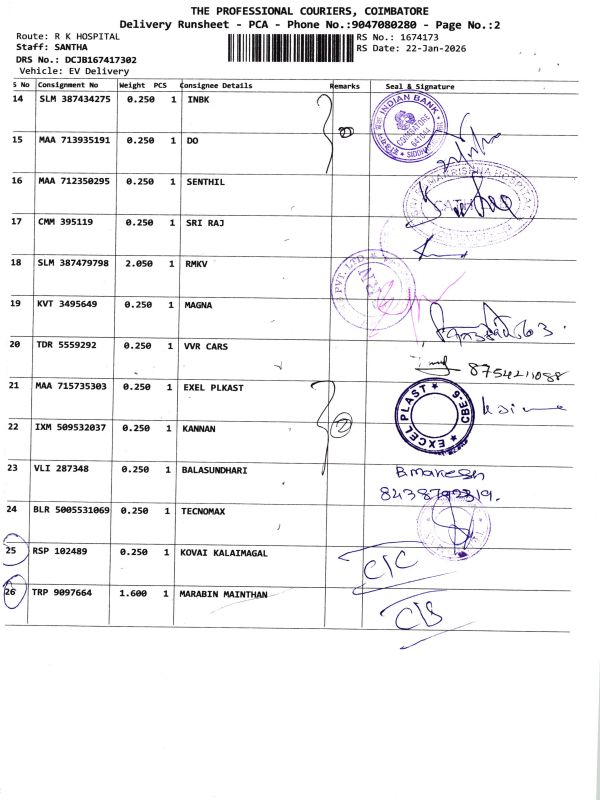 THE PROFESSIONAL COURIERS, COIMBATORE
Delivery Runsheet - PCA - Phone No.:9047080280 - Page No.:2
Route: R K HOSPITAL
RS No.: 1674173
Staff: SANTHA
RS Date: 22-Jan-2026
DRS No.: DCJB167417302
Vehicle: EV Delivery
S No Consignment No Weight PCS Consignee Details Remarks Seal & Signature
14 SLM 387434275 0.250 1 INBK
INDIAN BANK
COIMBATORE
641044
15 MAA 713935191 0.250 1 DO
16 MAA 712350295 0.250 1 SENTHIL
17 CMM 395119 0.250 1 SRI RAJ
18 SLM 387479798 2.050 1 RMKV
PVT. LTD.
19 KVT 3495649 0.250 1 MAGNA
20 TDR 5559292 0.250 1 VVR CARS
8754211088
21 MAA 715735303 0.250 1 EXEL PLKAST
EXCEL PLAST ★ CBE-6 ★
22 IXM 509532037 0.250 1 KANNAN
2
23 VLI 287348 0.250 1 BALASUNDHARI
B.Makesh
8438792319.
24 BLR 5005531069 0.250 1 TECNOMAX
25 RSP 102489 0.250 1 KOVAI KALAIMAGAL
C/C
26 TRP 9097664 1.600 1 MARABIN MAINTHAN